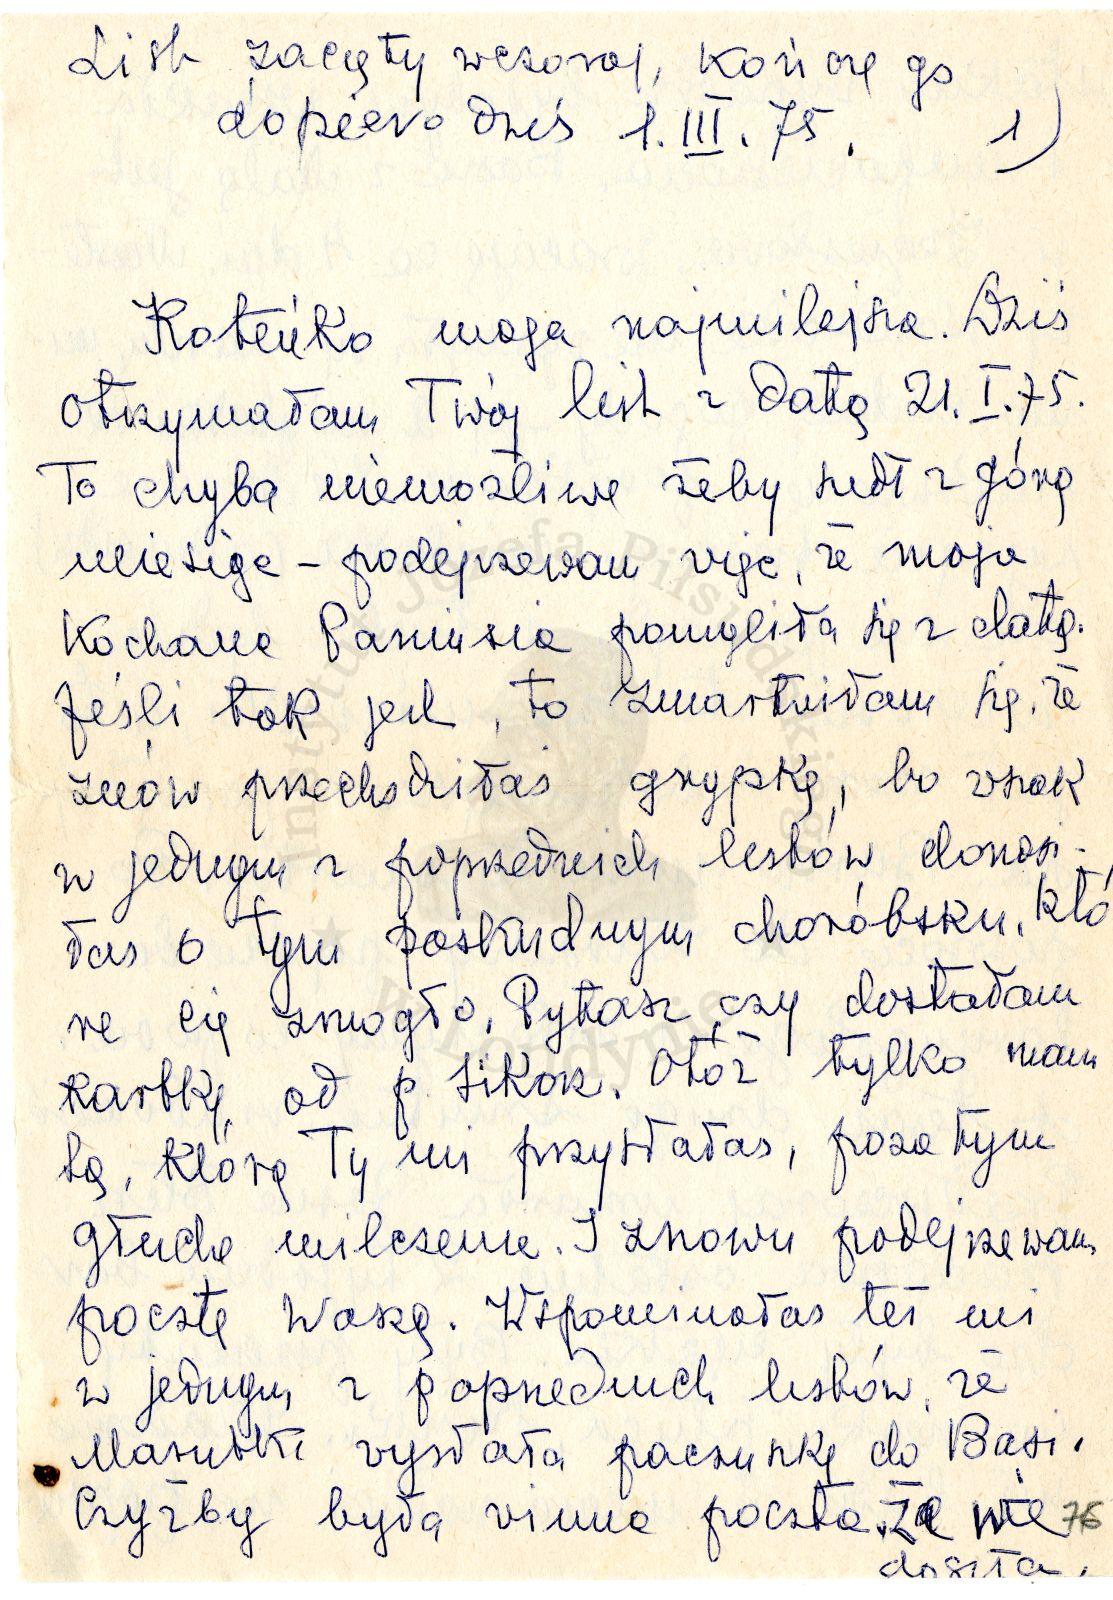 List zaczęty wczoraj, kończę go
dopiero dziś 1.III.75. 1)
Koteńko moja najmilejsza. Dziś
otrzymałam Twój list z datą 21.I.75.
To chyba niemożliwe żeby szedł z górą
miesiąc – podejrzewam więc, że moja
Kochana Paniusia pomyliła się z datą.
Jeśli tak jest, to zmartwiłam się, że
znów przechodziłaś grypkę, bo wszak
w jednym z poprzednich listów donosi-
łaś o tym paskudnym choróbsku, któ
re Cię zmogło. Pytasz czy dostałam
kartkę od p. Sikor. Otóż tylko mam
tą, którą Ty mi przysłałaś, poza tym
głuche milczenie. I znowu podejrzewam
pocztę Waszą. Wspominałaś też mi
w jednym z poprzednich listów, że
wysłała paczuszkę do Basi.
Czyżby była winna poczta, że nie 76
doszła.
Instytut Józefa Piłsudskiego
w Londynie